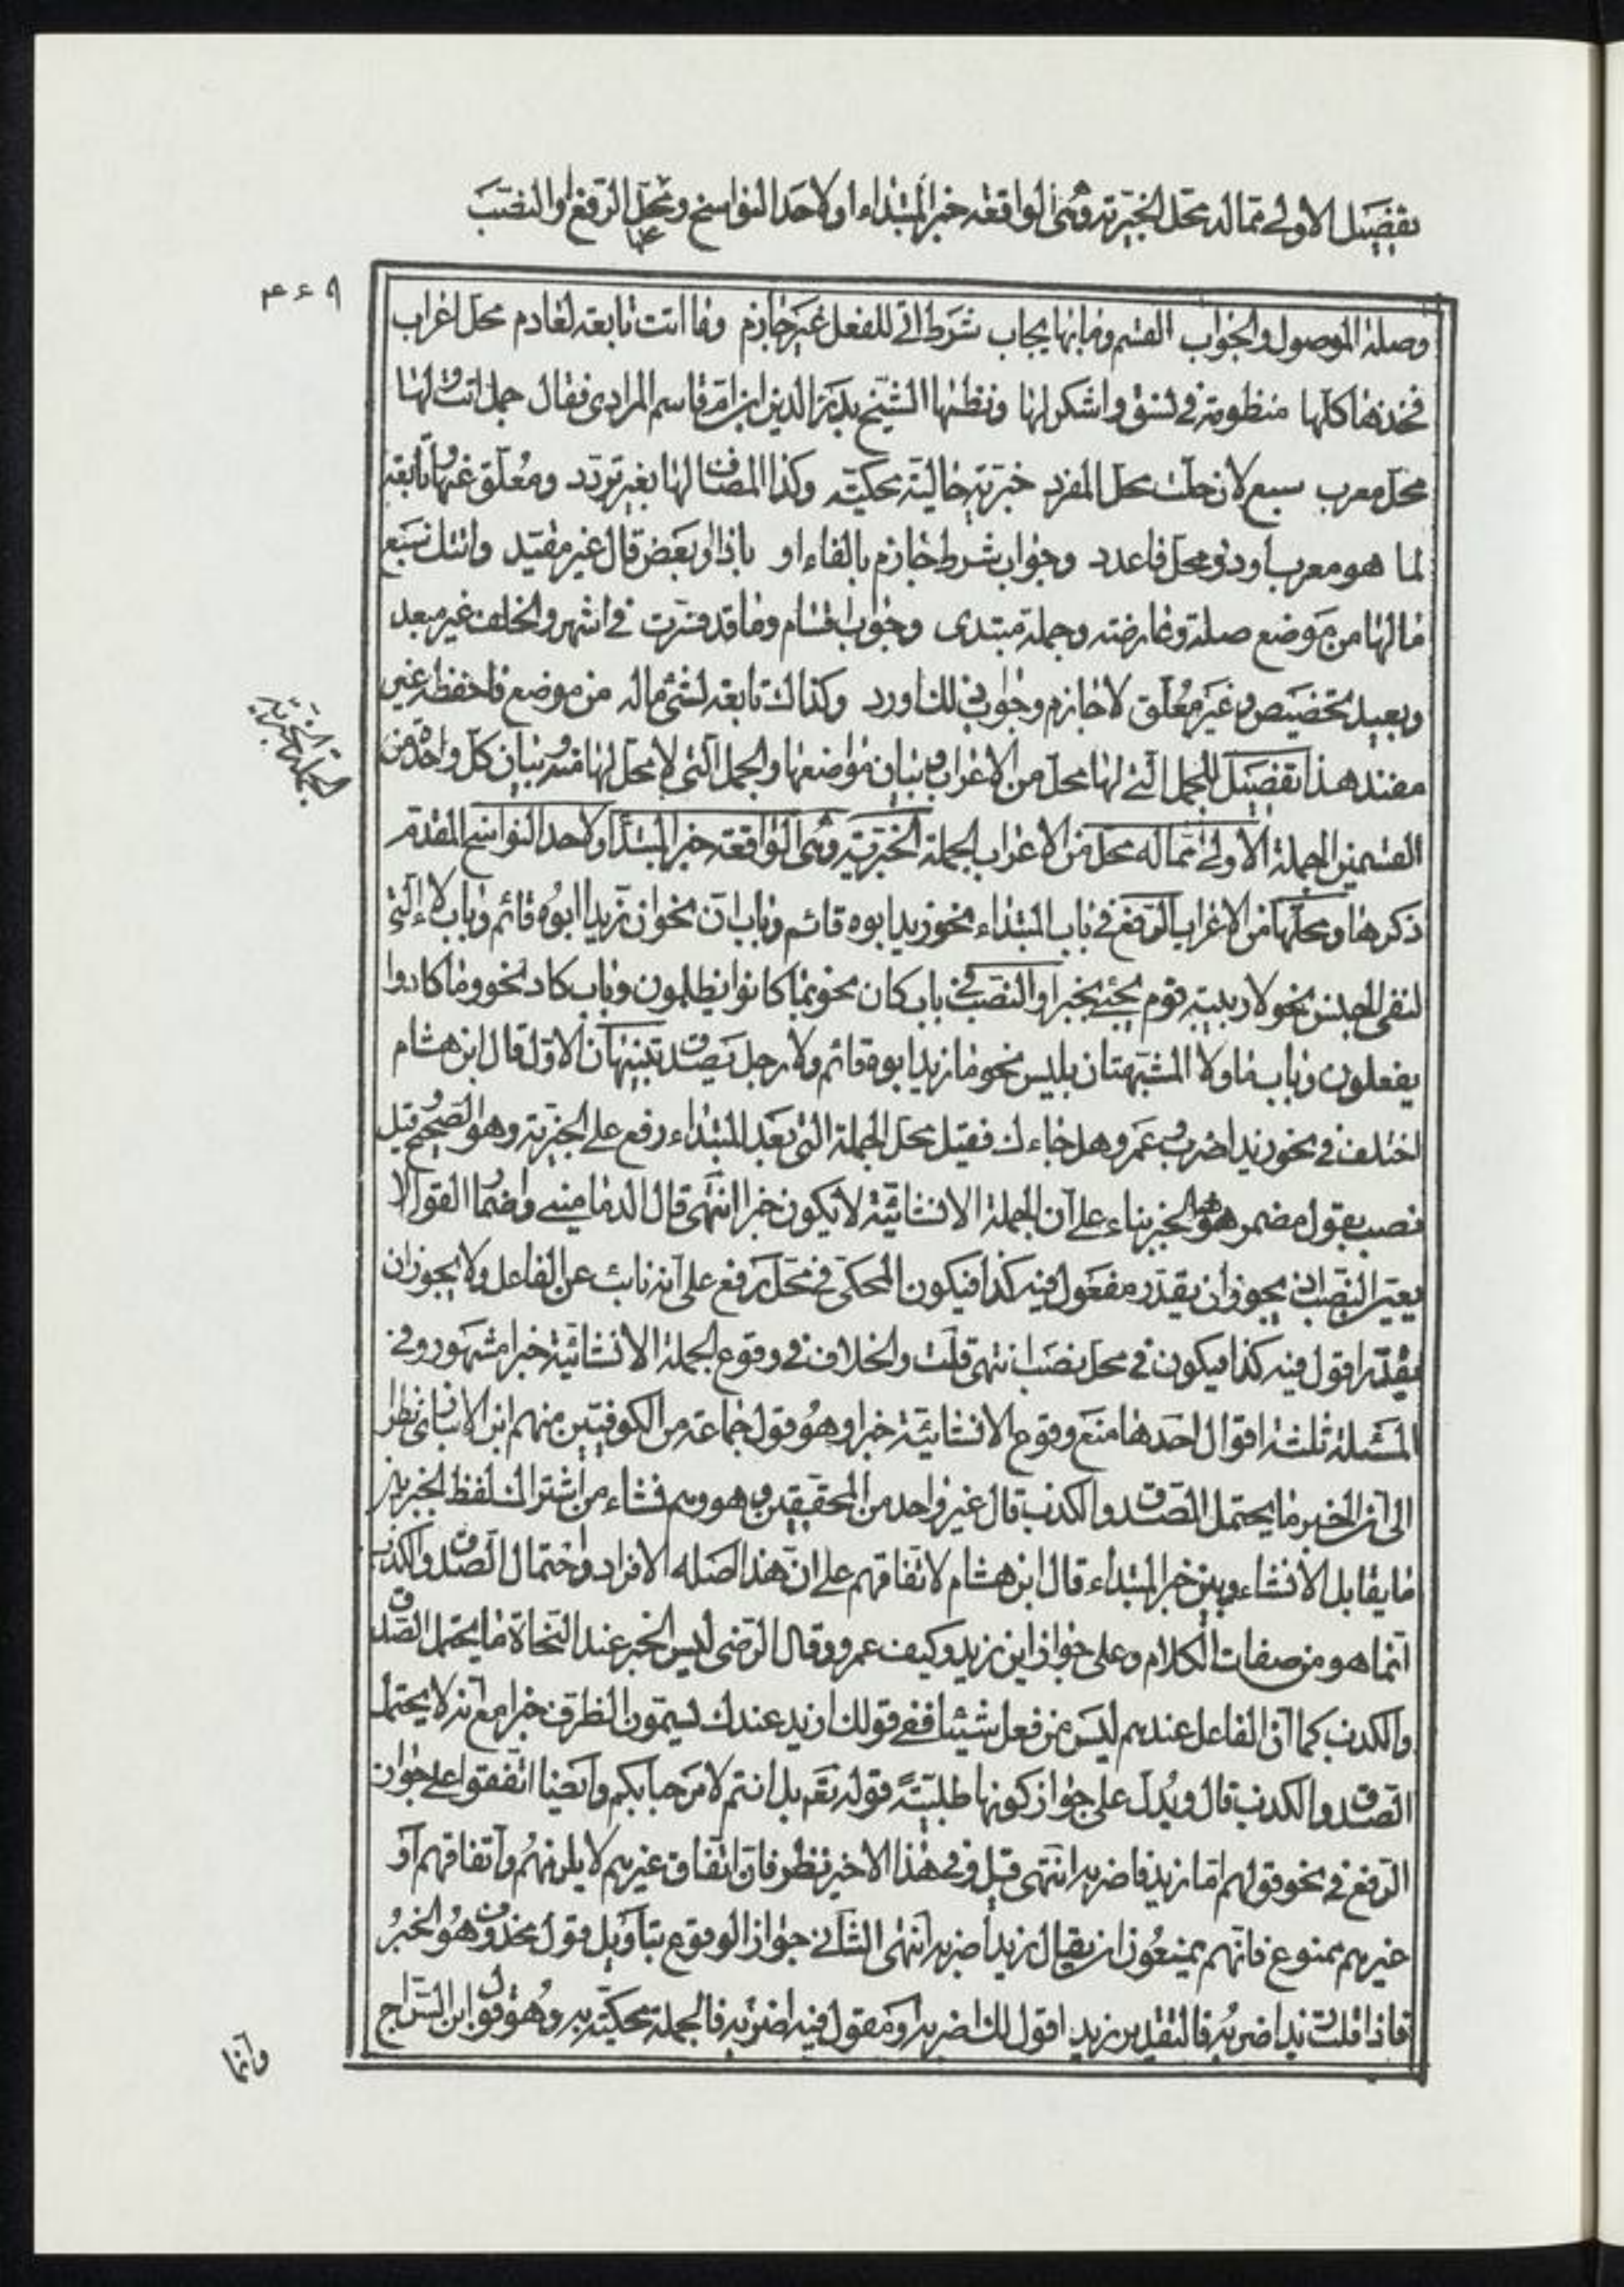 تفضيل الاولى مما له محل الخبرية وهى الواقعة خبر المبتداء او لاحد النواسخ ومحل الرفع او النصب
٤٤٩
وصلة الموصول والجواب القسم وما بها يجاب شرط اتى للفعل غير جازم وما اتت تابعة لعادم محل اعراب
فخذها كلها منظومة فى نسق واشكر لها ونظمها الشيخ بدر الدين ابن ام قاسم المرادى فقال جمل اتت ولها
محل معرب سبع لان حلت محل المفرد خبرية حالية محكية وكذا المضاف لها بغير تردد ومعلق عنها وتابعة
لما هو معرب او ذو محل فاعدد وجواب شرط جازم بالفاء او باذا وبعض قال غير مقيد واتتك سبع
ما لها من موضع صلة وعارضة وجملة مبتدى وجواب اقسام وما قد فسرت فى اشهر والخلف غير مبعد
وبعيد تحضيض وغير معلق لا جازم وجواب ذلك اورد وكذاك تابعة لشئ ماله من موضع فاحفظه غير
مفند هذا تفضيل للجمل التى لها محل من الاعراب وبيان مواضعها والجمل التى لا محل لها وبيان كل واحدة من
الجملة الخبرية
القسمين الجملة الاولى مما له محل من الاعراب الجملة الخبرية وهى الواقعة خبر المبتدأ او لاحد النواسخ المقدم
ذكرها ومحلها من الاعراب الرفع فى باب المبتداء نحو زيد ابوه قائم وباب ان نحو ان زيدا ابوه قائم وباب لا التى
لنفى الجنس نحو لا ربيبة قوم يجئ بخبر او النصب فى باب كان نحو بما كانوا يظلمون وباب كاد نحو وما كادوا
يفعلون وباب ما ولا المشبهتان بليس نحو ما زيد ابوه قائم ولا رجل يصدق تنبيهان الاول قال ابن هشام
اختلف فى نحو زيد اضربه وعمرو هل جاءك فقيل محل الجملة التى بعد المبتداء رفع على الخبرية وهو الصحيح وقيل
نصب بقول مضمر هو الخبر بناء على ان الجملة الانشائية لا يكون خبرا انتهى قال الدمامينى واضمار القول لا
يعين النصب اذ يجوز ان يقدر مفعول فيه كذا فيكون المحكى فى محل رفع على انه نائب عن الفاعل ولا يجوز ان
يقدر اقول فيه كذا فيكون فى محل نصب انتهى قلت والخلاف فى وقوع الجملة الانشائية خبرا مشهور وفى
المسئلة ثلثة اقوال احدها منع وقوع الانشائية خبرا وهو قول جماعة من الكوفيين منهم ابن الانبارى نظرا
الى ان الخبر ما يحتمل الصدق والكذب قال غير واحد من المحققين وهو وهم فشاء من اشتراك لفظ الخبر بين
ما يقابل الانشاء وبين خبر المبتداء قال ابن هشام لاتفاقهم على ان هذا اصله الافراد واحتمال الصدق والكذب
انما هو من صفات الكلام وعلى جواز اين زيد وكيف عمرو وقال الرضى ليس الخبر عند النحاة ما يحتمل الصدق
والكذب كما ان الفاعل عندهم ليس من فعل شيئا ففى قولك ازيد عندك يسمون الظرف خبرا مع انه لا يحتمل
الصدق والكذب قال ويدل على جواز كونها طلبية قوله تعم بل انتم لا مرحبا بكم وايضا اتفقوا على جواز
الرفع فى نحو قولهم اما زيد فاضربه انتهى قيل وفى هذا الاخير نظر فان اتفاق غيرهم لا يلزمهم واتفاقهم او
غيرهم ممنوع فانهم يمنعون ان يقال زيد اضربه انتهى الثانى جواز الوقوع بتاويل قول محذوف هو الخبر
فاذا قلت زيد اضربه فالتقدير زيد اقول لك اضربه او مقول فيه اضربه فالجملة محكية به وهو قول ابن السراج
وانما